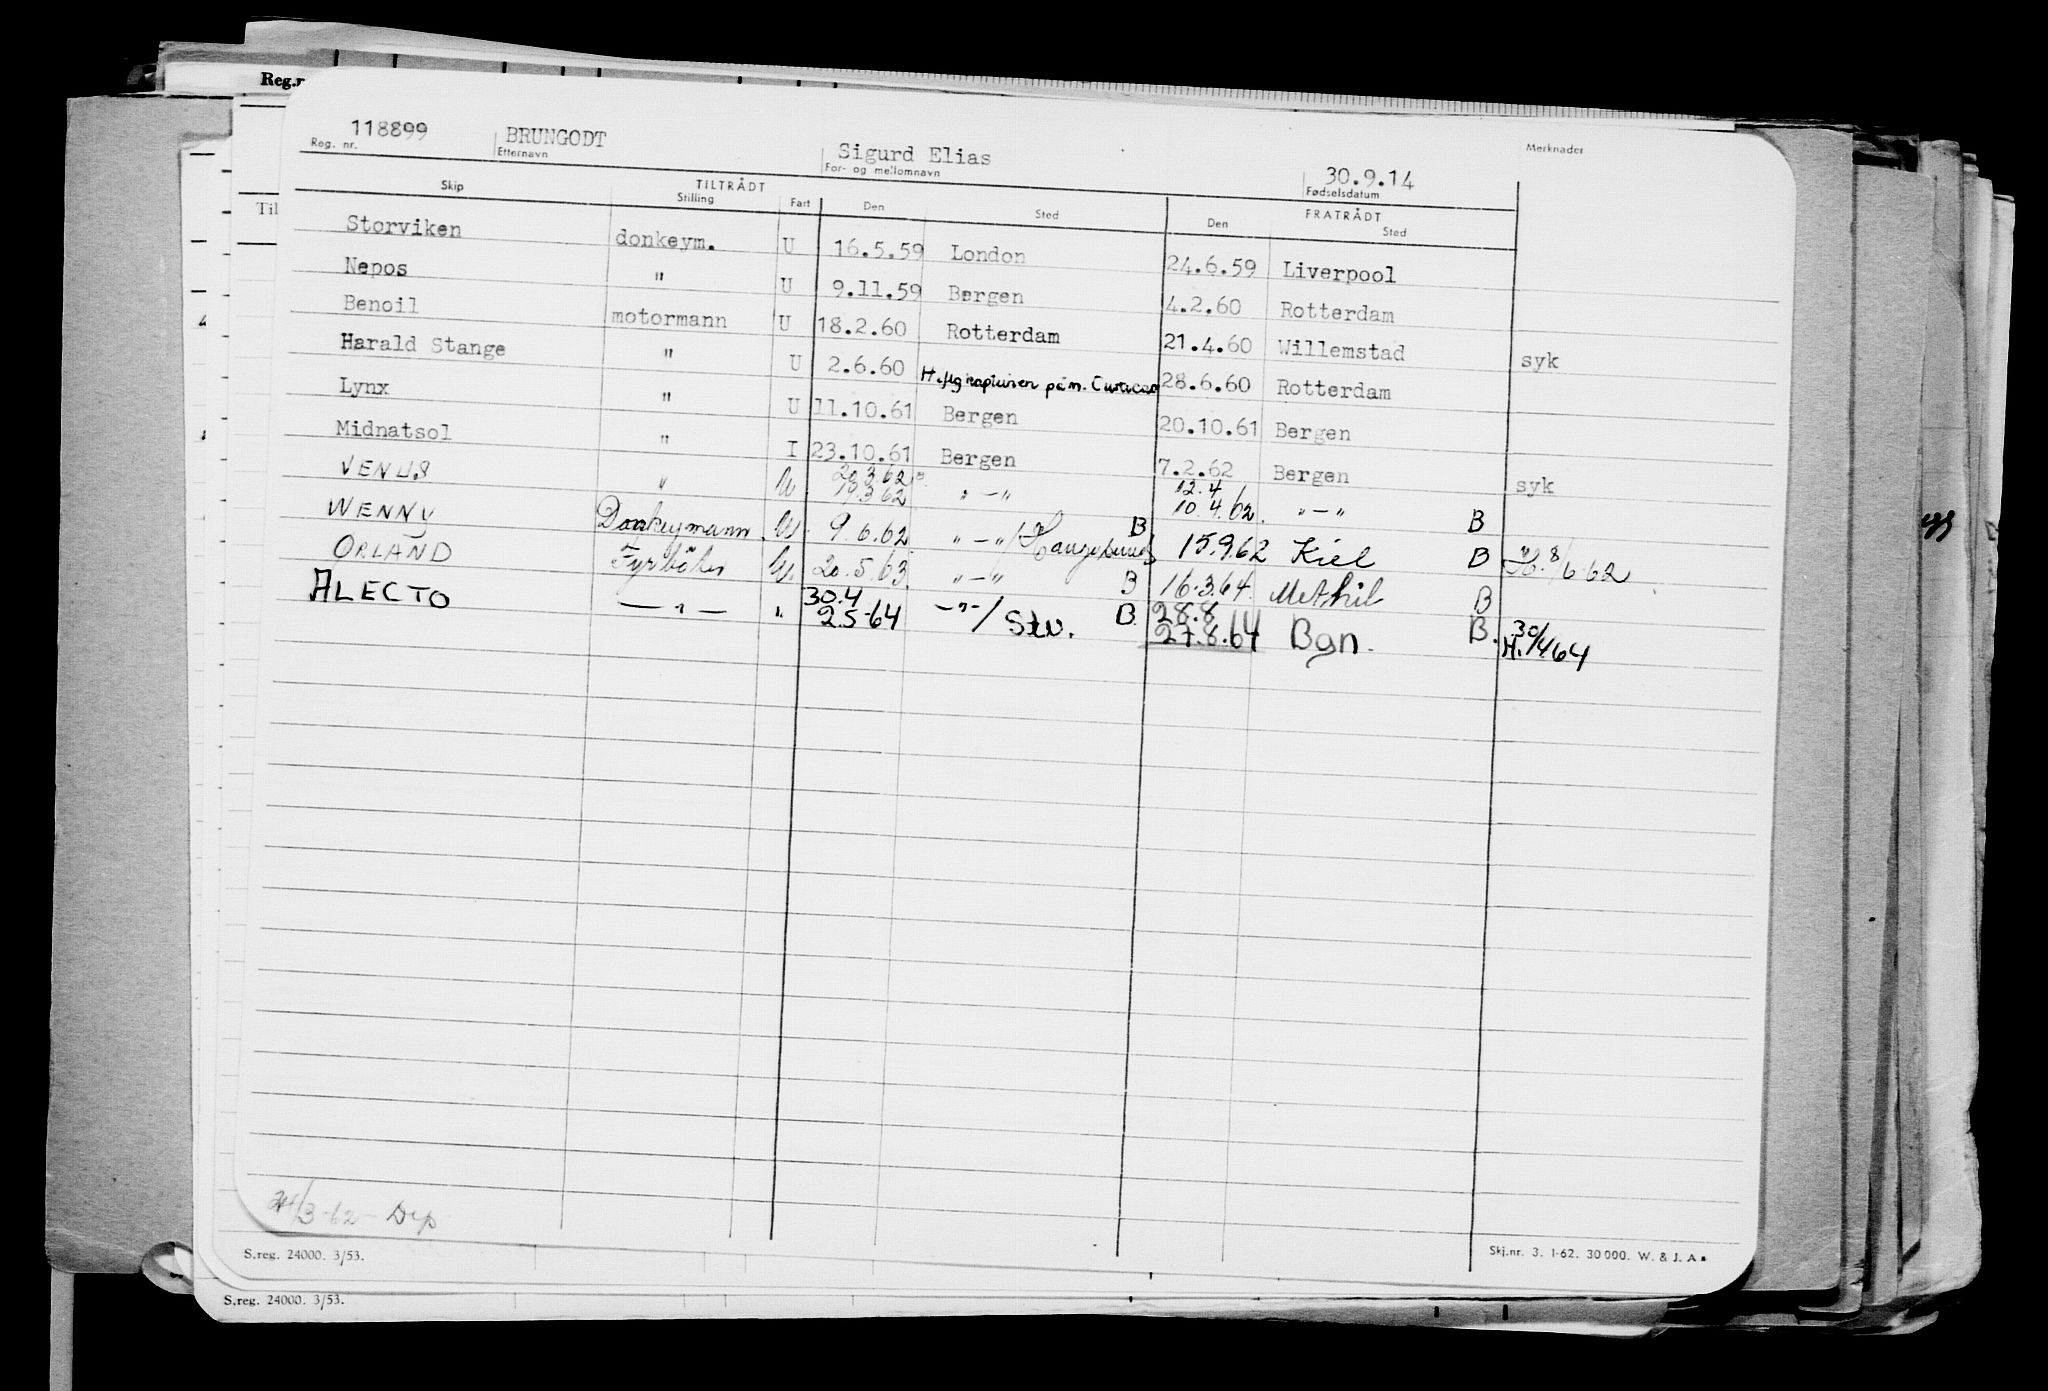 Reg.n
118899 BRUNGODT Sigurd Elias 30.9.14
Reg. nr. Etternavn For- og mellomnavn Fødselsdatum Merknader
TILTRÅDT FRATRÅDT
Skip Stilling Fart Den Sted Den Sted
Til
Storviken donkeym. U 16.5.59 London 24.6.59 Liverpool
Nepos " U 9.11.59 Bergen 4.2.60 Rotterdam
Benoil motormann U 18.2.60 Rotterdam 21.4.60 Willemstad syk
Harald Stange " U 2.6.60 på m. Curacao 28.6.60 Rotterdam
Lynx " U 11.10.61 Bergen 20.10.61 Bergen
Midnatsol " I 23.10.61 Bergen 7.2.62 Bergen syk
20.3.62 12.4
VENUS " U. 19.3.62 " — " B 10.4.62. " — " B
WENNY Donkeymann U. 9.6.62 " — " / Haugesund 15.9.62 Kiel B H. 8/6-62
ORLAND Fyrbøter U. 20.5.63 " — " B 16.3.64. Methil B
30.4 28.8
ALECTO — " — " 2.5-64 — " — / Stv. B. 27.8.64 Bgn. B. H. 30/4.64
24/3-62 - Dep
S.reg. 24000. 3/53. Skj.nr. 3. 1-62. 30 000. W. & J. A.
S.reg. 24000. 3/53.